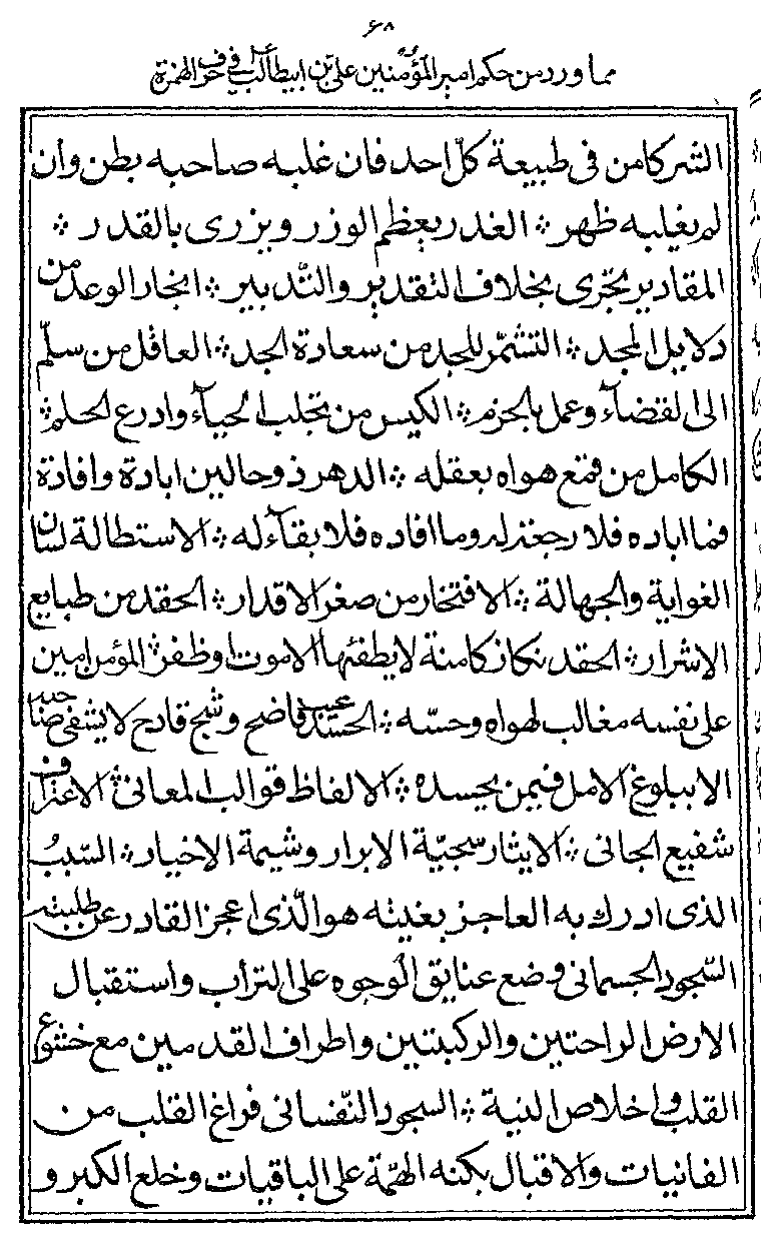 ٦٨
مما ورد من حكم امير المؤمنين علي بن ابيطالب في حرف الهمزة
الشر كامن في طبيعة كلّ احد فان غلبه صاحبه بطن وان
لم يغلبه ظهر ؞ الغدر يعظم الوزر ويزرى بالقدر ؞
المقادير تجرى بخلاف التقدير والتّدبير ؞ انجاز الوعد من
دلايل المجد ؞ التشمّر للجد من سعادة الجد ؞ العاقل من سلّم
الى القضآء وعمل بالحزم ؞ الكيس من تجلبب الحيآء وادرع الحلم ؞
الكامل من قمع هواه بعقله ؞ الدهر ذو حالين ابادة وافادة
فما اباده فلا رجعة له وما افاده فلا بقآء له ؞ الاستطالة لسان
الغواية والجهالة ؞ الافتخار من صغر الاقدار ؞ الحقد من طبايع
الاشرار ؞ الحقد نار كامنة لا يطفئها الا موت او ظفر ؞ المؤمن امين
على نفسه مغالب لهواه وحسّه ؞ الحسد عيب فاضح وشج قادح لا يشفى صاحبه
الا ببلوغ الامل فيمن يحسده ؞ الالفاظ قوالب المعانى ؞ الاعتراف
شفيع الجانى ؞ الايثار سجيّة الابرار وشيمة الاخيار ؞ السّببُ
الذى ادرك به العاجز بغيته هو الّذى اعجز القادر عن طلبيته
السّجود الجسمانى وضع عتايق الوجوه على التراب واستقبال
الارض الراحتين والركبتين واطراف القدمين مع خشوع
القلب واخلاص النية ؞ السجود النّفسانى فراغ القلب من
الفانيات والاقبال بكنه الهمّة على الباقيات وخلع الكبر و